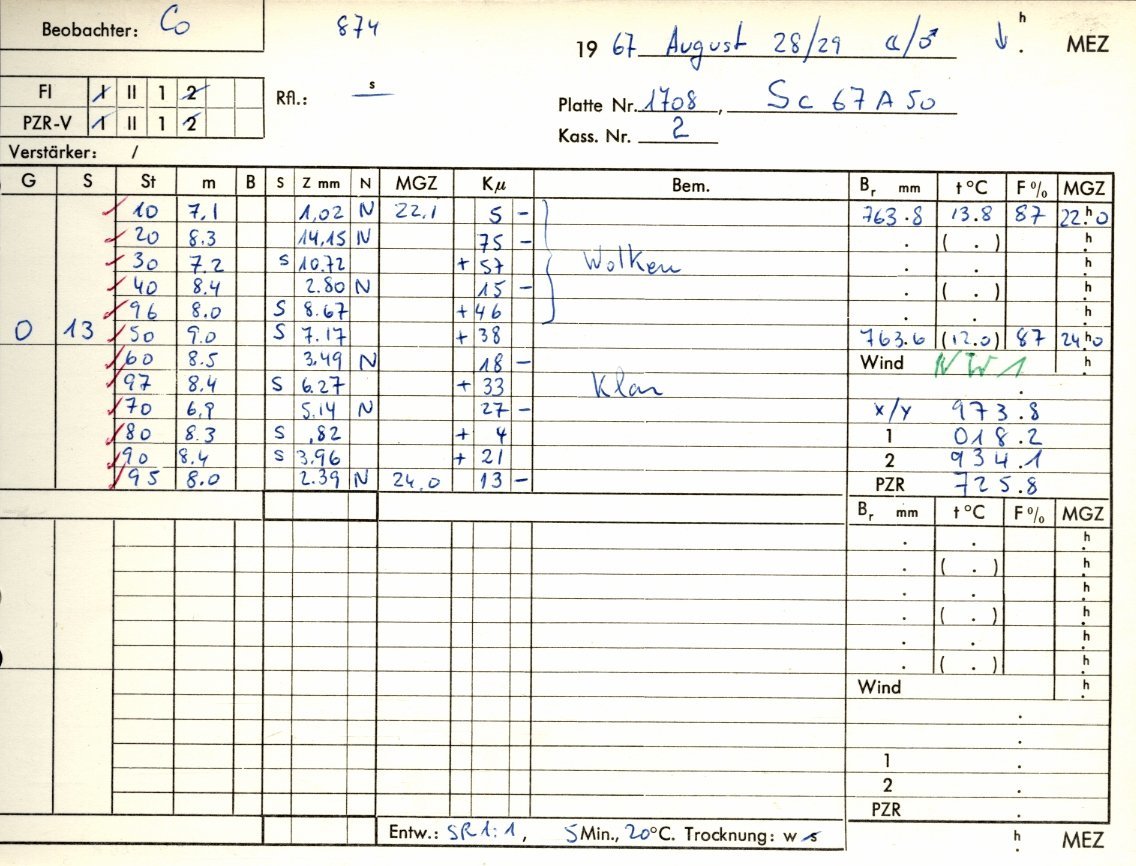 Beobachter: Co 874 19 67 August 28/29 ☾/♂ ↓ h . MEZ
FI I II 1 2 Rfl.: s
PZR-V I II 1 2 Platte Nr. 1708, Sc 67 A 50
Kass. Nr. 2
Verstärker: /
G S St m B S Z mm N MGZ Kμ Bem. Br mm t °C F % MGZ
10 7,1 1,02 N 22,1 5 – 763.8 13.8 87 22h.0
20 8.3 14,15 N 75 – . ( . ) h.
30 7.2 S 10.72 + 57 Wolken . . h.
40 8.4 2.80 N 15 – . ( . ) h.
96 8.0 S 8.67 + 46 . . h.
0 13 50 9.0 S 7.17 + 38 763.6 (12.0) 87 24h.0
60 8.5 3.49 N 18 – Wind NW 1 h.
97 8.4 S 6.27 + 33 Klar .
70 6,9 5.14 N 27 – x/y 973.8
80 8.3 S ,82 + 4 1 018.2
90 8.4 S 3.96 + 21 2 934.1
95 8.0 2.39 N 24,0 13 – PZR 725.8
Br mm t °C F % MGZ
. . h.
. ( . ) h.
. . h.
. ( . ) h.
. . h.
. ( . ) h.
Wind h.
.
.
1 .
2 .
PZR .
Entw.: SR 1:1, 5 Min., 20 °C. Trocknung: w s h . MEZ